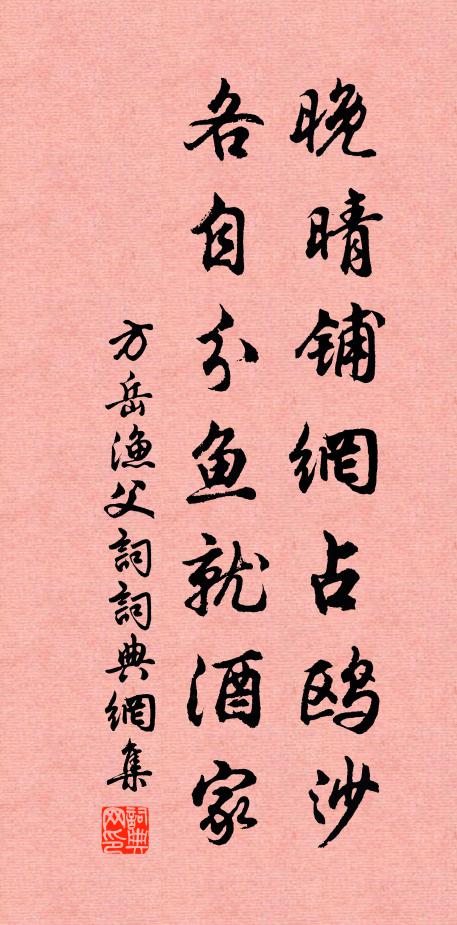 晚晴铺網占鸥沙
各自分鱼就酒家
方岳漁父詞詞典網集
詞典网印